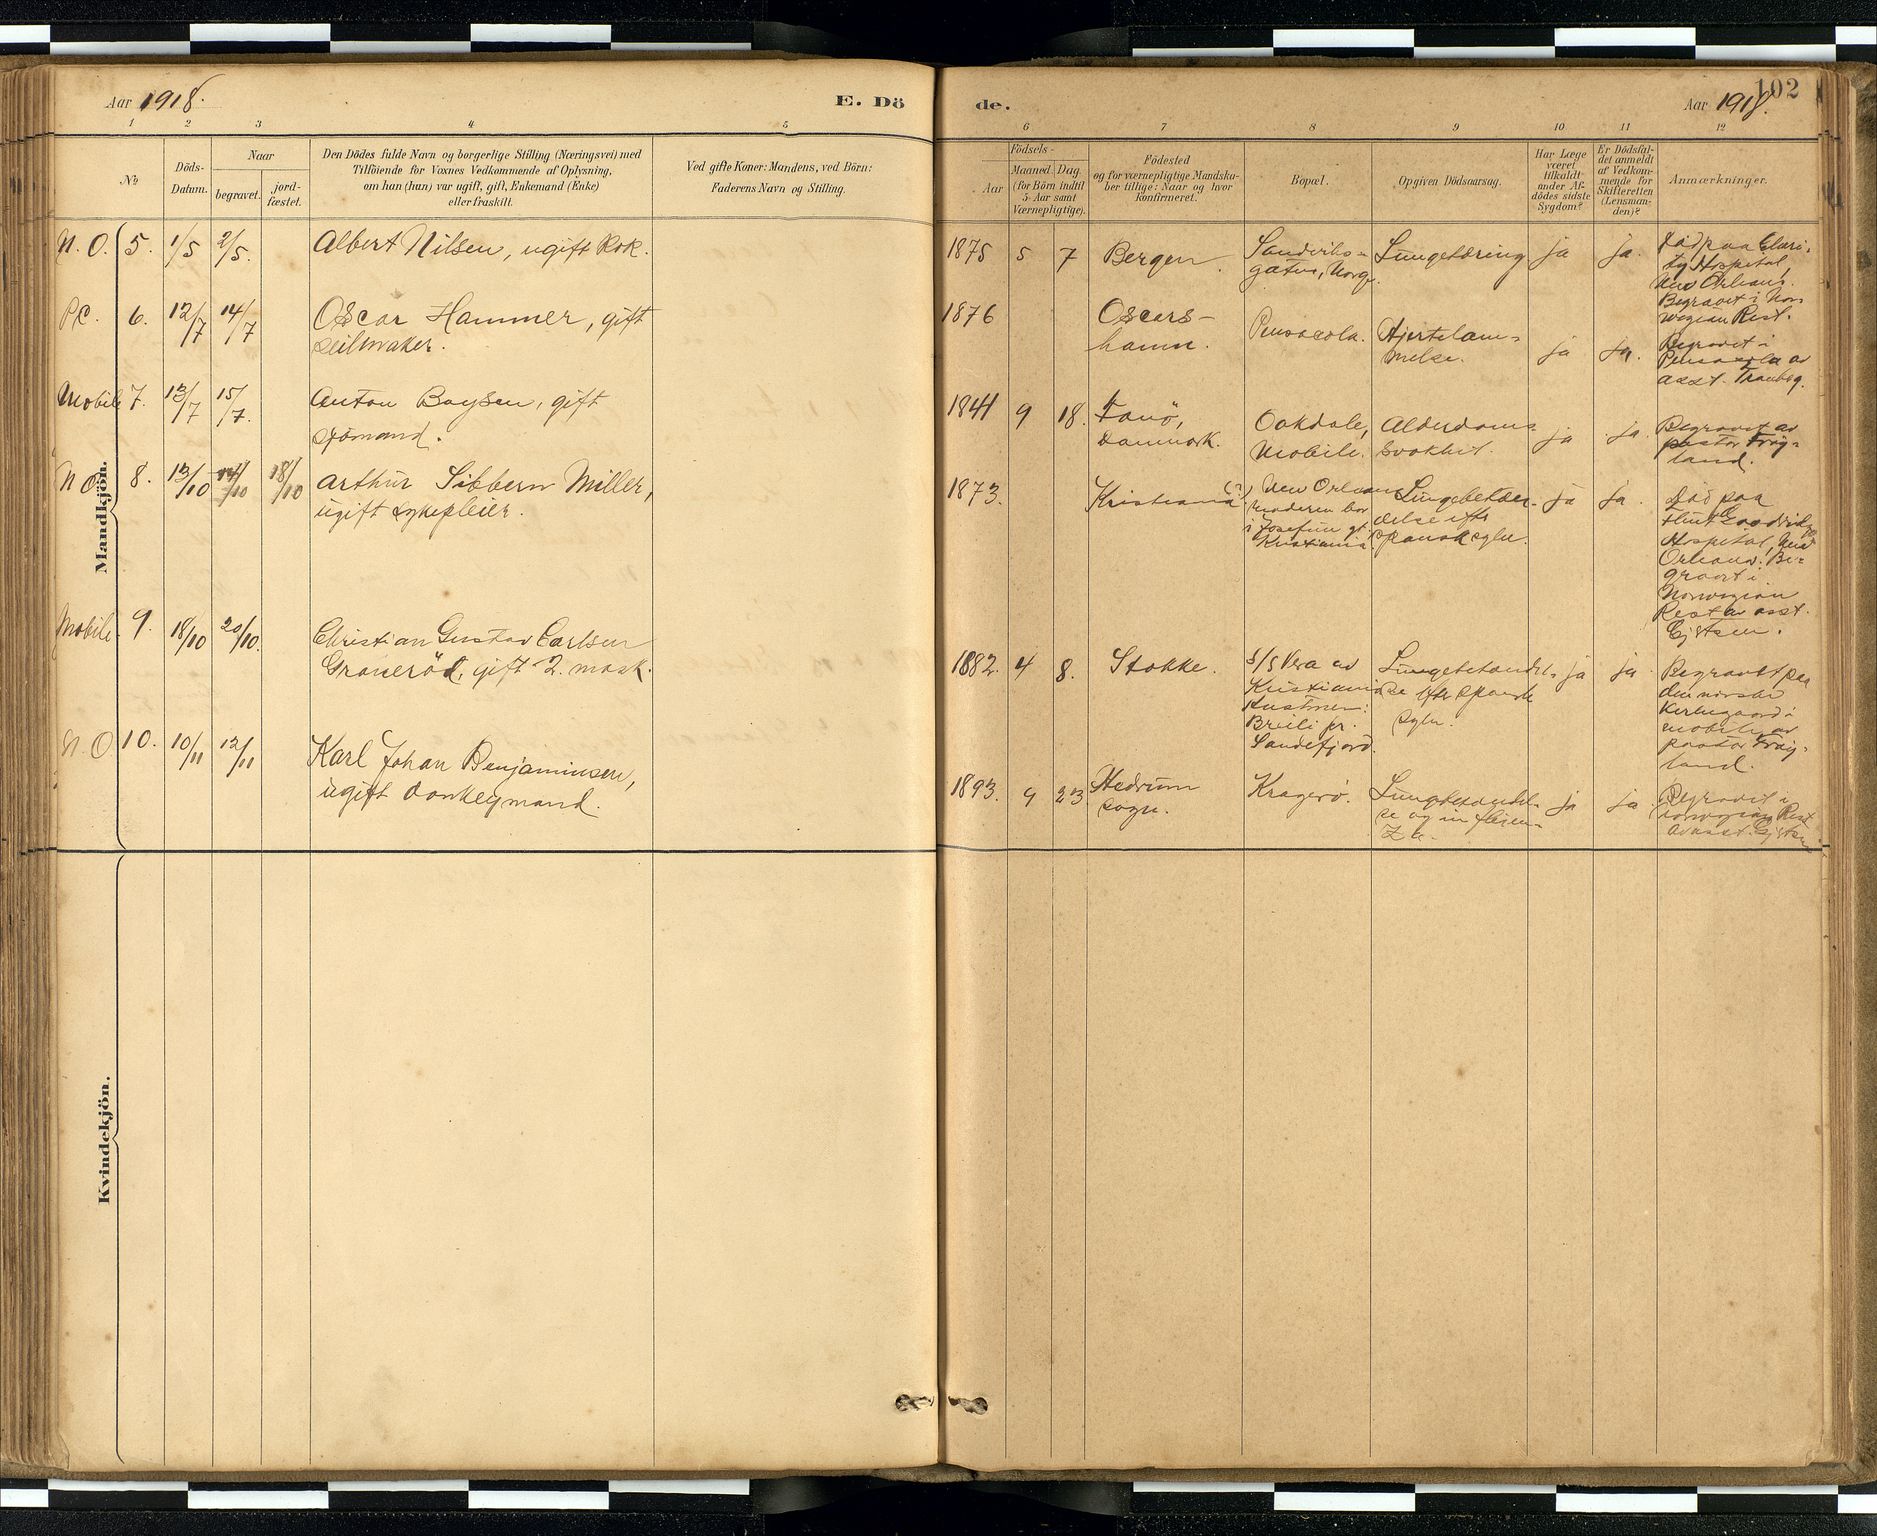 Aar 1918.
E. Dö
1 2 3 4 5
No
Döds-
Datum.
Naar
begravet.
jord-
fæstet.
Den Dödes fulde Navn og borgerlige Stilling (Næringsvei) med
Tilföiende for Voxnes Vedkommende af Oplysning,
om han (hun) var ugift, gift, Enkemand (Enke)
eller fraskilt.
Ved gifte Koner: Mandens, ved Börn:
Faderens Navn og Stilling.
Mandkjön.
N. O. 5. 1/5 2/5. Albert Nilsen, ugift Kok.
P.C. 6. 12/7 14/7 Oscar Hammer, gift
seilmaker.
Mobile 7. 13/7 15/7. Anton Boysen, gift
sjömand.
N.O. 8. 13/10 14/10 18/10 Arthur Sibbern Miller,
ugift sykepleier.
Mobile. 9. 18/10 20/10. Christian Gustav Carlsen
Graneröd, gift 2. mask.
N.O 10. 10/11 12/11 Karl Johan Benjaminsen,
ugift donkeymand.
Kvindekjön.
de.
102
Aar 1918.
6 7 8 9 10 11 12
Födsels-
Aar
Maaned. Dag.
(for Börn indtil
5 Aar samt
Værnepligtige).
Födested
og for værnepligtige Mandska-
ber tillige: Naar og hvor
Konfirmeret.
Bopæl.
Opgiven Dödsaarsag.
Har Læge
været
tilkaldt
under Af-
dödes sidste
Sygdom?
Er Dödsfal-
det anmeldt
af Vedkom-
mende for
Skifteretten
(Lensman-
den)?
Anmærkninger.
1875 5 7 Bergen.
Sandviks-
gaten, Norge.
Lungetæring
ja ja.
Död paa Chari-
ty Hospital,
New Orleans.
Begravet i Nor-
wegian Rest.
1876
Oscars-
hamn.
Pensacola.
Hjertelam-
melse.
ja ja.
Begravet i
Pensacola av
asst. Tranberg.
1841 9 18.
Fanö,
Danmark.
Oakdale,
Mobile.
Alderdoms
svakhet.
ja ja.
Begravet av
pastor Fröy-
land.
1873.
Kristiania (?)
New Orleans
moderen bor
i Josefine gt.
Kristiania.
Lungebetæn-
delse efter
spansk syke.
ja ja.
Död paa
Hospital, New
Orleans. Be-
gravet i
Norwegian
Rest av asst.
Gjertsen.
1882. 4 8.
Stokke.
S/S Vera av
Kristiania
Kustmen:
Breili pr.
Sandefjord.
Lungebetændel-
se efter spanske
syke.
ja ja.
Begravet paa
den norske
kirkegaard i
Mobile av
pastor Fröy-
land.
1893. 9 23.
Hedrum
sogn.
Kragerö.
Lungebetændel-
se og influen-
za.
ja ja
Begravet i
Norwegian Rest
av asst. Gjertsen